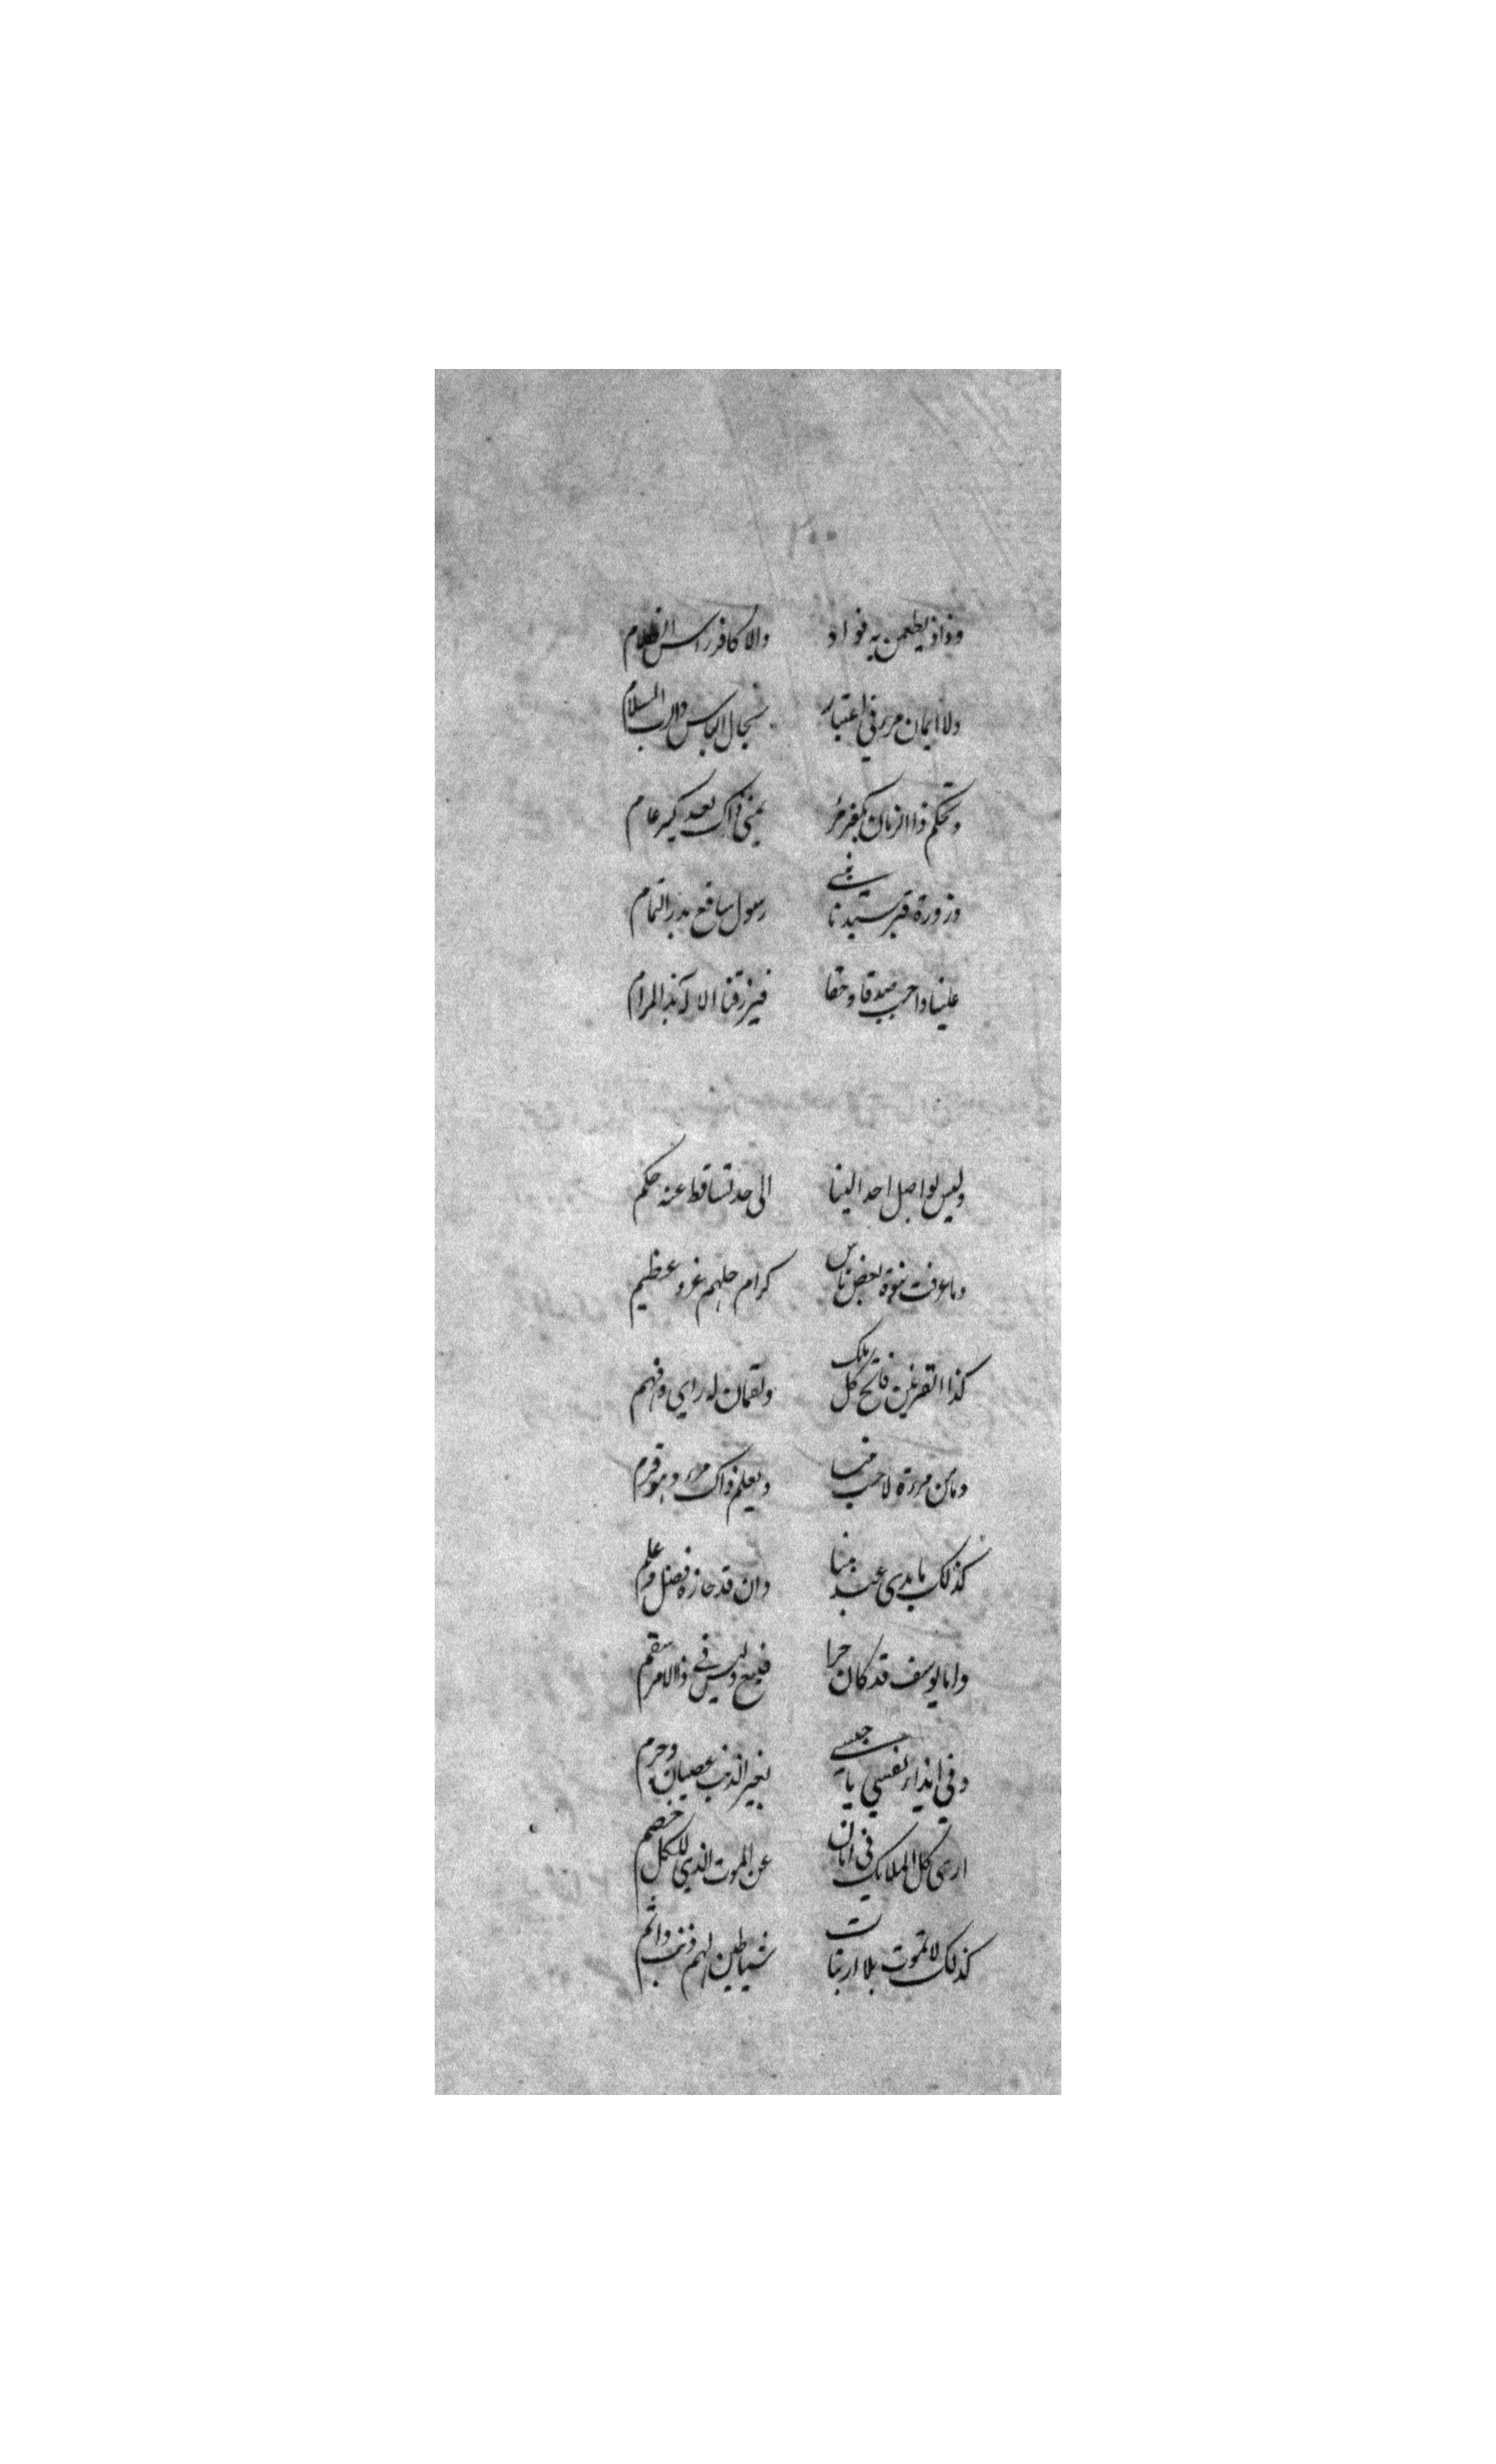 وذاذ يطمن به فواد والا كافر راس الظلام
ولا ايمان مرء في اعتبار بحال الياس دارب السلام
وتحكم ذا الزمان بكفر مرء يمنى ذاك بعد كبير عام
وزورة قبر سيدنا نبي رسول شافع بدر التمام
علينا واجب صدقا وحقا فيرزقنا الاله بذا المرام
وليس لواصل احد الينا الى حد تساقط عنه حكم
وما عرفت نبوة بعض ناس كرام جلهم غر وعظيم
كذا القرنين فاتح كل ملك ولقمان له راي وفهم
وما من مرءة لاحب نبيا ويعلم ذاك مرء وهو قرم
كذلك ما بدى عبد نبيا وان قد حازه فضل وعلم
واما يوسف قد كان حرا فبيع وليس في ذا الامر سقم
وفي ايذاء نفسي يا حبيبي بغير الذنب عصيان وجرم
ارى كل الملايك في امان عن الموت الذي للكل خصم
كذلك لا تموت بلا ارتياب شياطين لهم ذنب واثم